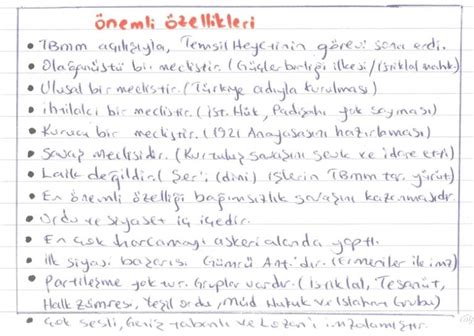 önemli özellikleri
• TBMM açılışıyla, Temsil Heyetinin görevi sona erdi.
• Olağanüstü bir meclistir. (Güçler birliği ilkesi/istiklal mahk)
• Ulusal bir meclistir. (Türkiye adıyla kurulması)
• ihtilalci bir meclistir. (ist. Hük, Padişahı yok sayması)
• Kurucu bir meclistir. (1921 Anayasasını hazırlaması)
• Savaş Meclisidir. (Kurtuluş savaşını sevk ve idare etti)
• Laik değildir. (Şer'i (dini) işlerin TBMM tar. yürüt)
• En önemli özelliği bağımsızlık savaşını kazanmasıdır.
• Ordu ve siyaset iç içedir.
• En çok harcamayı askeri alanda yaptı.
• ilk siyasi başarısı Gümrü Ant.'dır. (Ermeniler ile imz)
• Partileşme yoktur. Gruplar vardır. (istiklal, Tesanüt,
Halk Zümresi, Yeşil ordu, Müd Hukuk ve Islahat Grubu)
• Çok sesli, geniş tabanlı ve